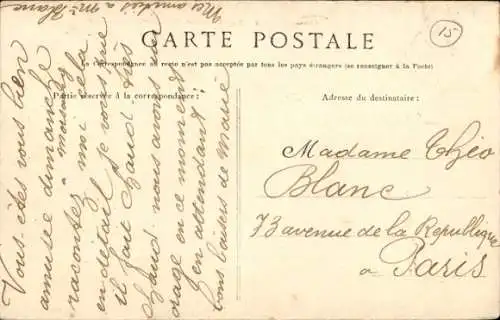 Mes amitiés à Mr Blanc
15
CARTE POSTALE
La Correspondance au recto n'est pas acceptée par tous les pays étrangers (se renseigner à la Poste)
Partie réservée à la correspondance:
Adresse du destinataire:
Vous êtes vous bien
amusée dimanche
racontez moi cela
moissonay
en détail je vous prie
il fait chaud très
chaud nous avons de l'
orage en ce moment
en attendant
bons baisers de Marie
Madame Théo
Blanc
73 avenue de la République
a Paris